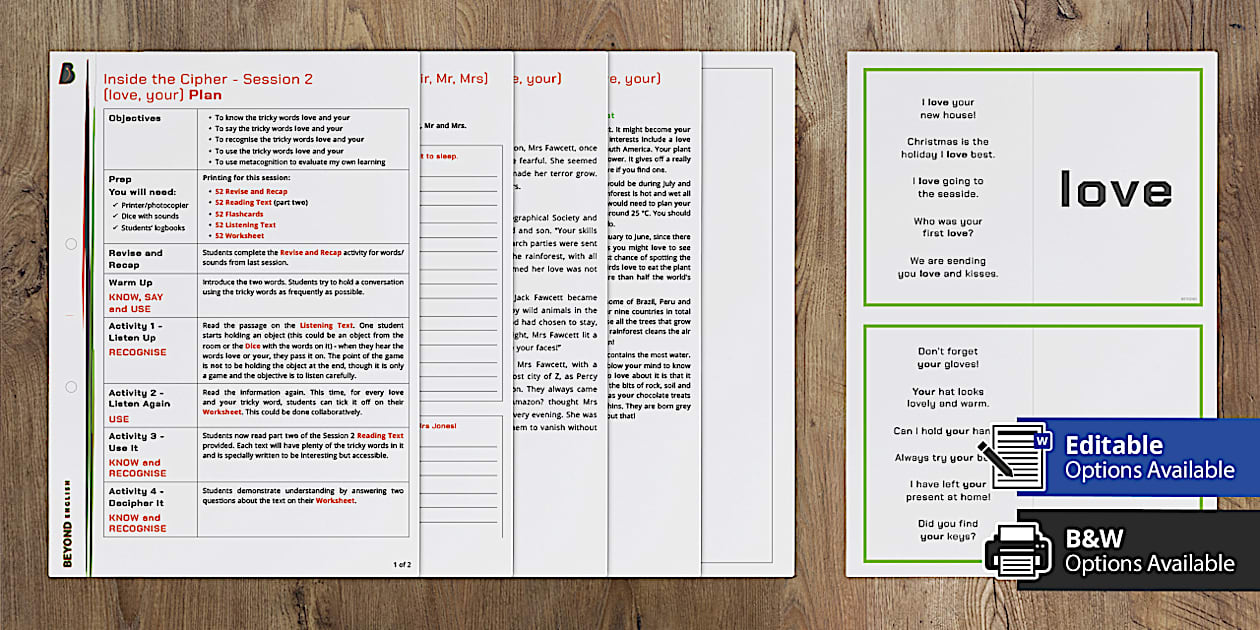 B
Inside the Cipher - Session 2
(love, your) Plan
Objectives
• To know the tricky words love and your
• To say the tricky words love and your
• To recognise the tricky words love and your
• To use the tricky words love and your
• To use metacognition to evaluate my own learning
Prep
You will need:
✓ Printer/photocopier
✓ Dice with sounds
✓ Students' logbooks
Printing for this session:
• S2 Revise and Recap
• S2 Reading Text (part two)
• S2 Flashcards
• S2 Listening Text
• S2 Worksheet
Revise and
Recap
Students complete the Revise and Recap activity for words/
sounds from last session.
Warm Up
KNOW, SAY
and USE
Introduce the two words. Students try to hold a conversation
using the tricky words as frequently as possible.
Activity 1 -
Listen Up
RECOGNISE
Read the passage on the Listening Text. One student
starts holding an object (this could be an object from the
room or the Dice with the words on it) - when they hear the
words love or your, they pass it on. The point of the game
is not to be holding the object at the end, though it is only
a game and the objective is to listen carefully.
Activity 2 -
Listen Again
USE
Read the information again. This time, for every love
and your tricky word, students can tick it off on their
Worksheet. This could be done collaboratively.
Activity 3 -
Use It
KNOW and
RECOGNISE
Students now read part two of the Session 2 Reading Text
provided. Each text will have plenty of the tricky words in it
and is specially written to be interesting but accessible.
Activity 4 -
Decipher It
KNOW and
RECOGNISE
Students demonstrate understanding by answering two
questions about the text on their Worksheet.
BEYOND ENGLISH
1 of 2
ir, Mr, Mrs)
, Mr and Mrs.
t to sleep.
rs Jones!
e, your)
on, Mrs Fawcett, once
fearful. She seemed
made her terror grow.
s.
graphical Society and
d and son. "Your skills
arch parties were sent
the rainforest, with all
med her love was not
Jack Fawcett became
y wild animals in the
d had chosen to stay,
ght, Mrs Fawcett lit a
your faces!"
Mrs Fawcett, with a
ost city of Z, as Percy
on. They always came
mazon? thought Mrs
very evening. She was
em to vanish without
e, your)
t. It might become your
interests include a love
uth America. Your plant
ower. It gives off a really
e if you find one.
ould be during July and
nforest is hot and wet all
would need to plan your
round 25 °C. You should
o.
uary to June, since there
s you might love to see
t chance of spotting the
rds love to eat the plant
re than half the world's
ome of Brazil, Peru and
r nine countries in total
se all the trees that grow
rainforest cleans the air
n!
contains the most water.
blow your mind to know
o love about it is that it
the bits of rock, soil and
as your chocolate treats
hins. They are born grey
out that!
I love your
new house!
Christmas is the
holiday I love best.
I love going to
the seaside.
Who was your
first love?
We are sending
you love and kisses.
love
BEYOND
Don't forget
your gloves!
Your hat looks
lovely and warm.
Can I hold your han
Always try your b
I have left your
present at home!
Did you find
your keys?
W
Editable
Options Available
B&W
Options Available